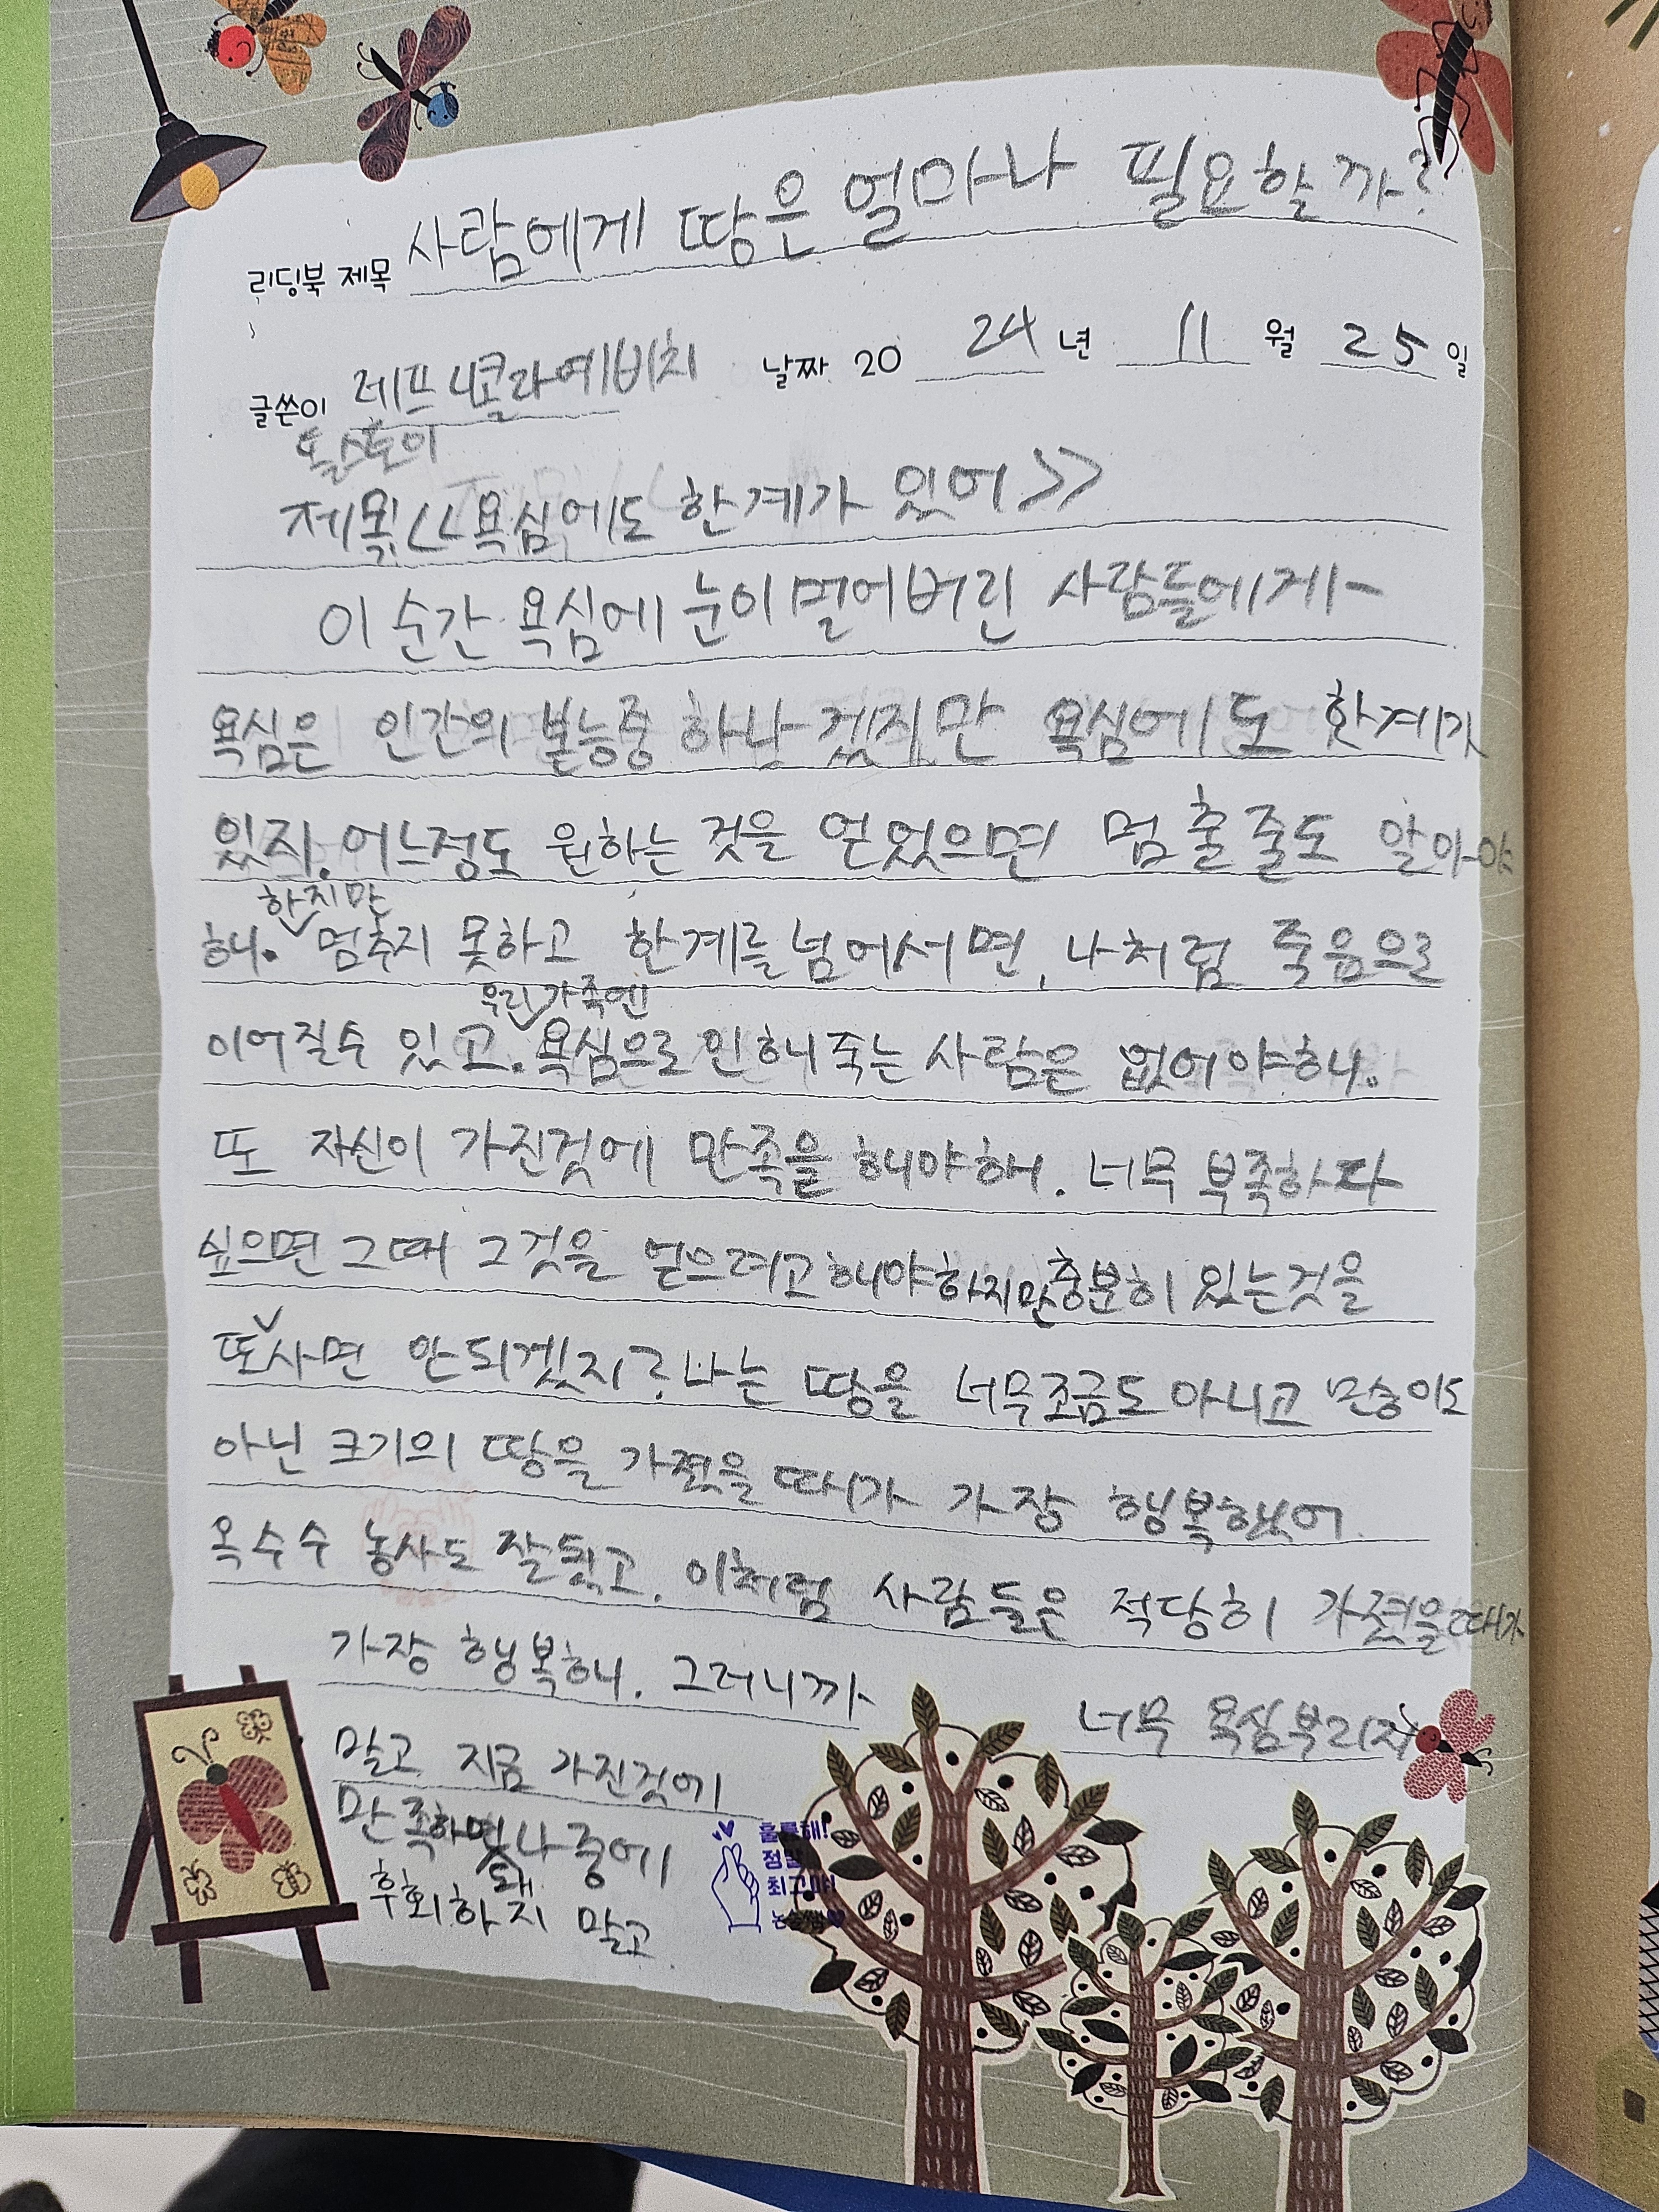 리딩북 제목 사람에게 땅은 얼마나 필요할까?
글쓴이 레프 니콜라예비치 날짜 20 24년 11월 25일
톨스토이
제목<<욕심에도 한계가 있어>>
이 순간 욕심에 눈이 멀어버린 사람들에게-
욕심은 인간의 본능중 하나겠지만 욕심에도 한계가
있지. 어느정도 원하는 것을 얻었으면 멈출 줄도 알아야
해. 하지만 멈추지 못하고 한계를 넘어서면, 나처럼 죽음으로
이어질수 있고. 우리 가족엔 욕심으로 인해 죽는 사람은 없어야해.
또 자신이 가진것에 만족을 해야해. 너무 부족하다
싶으면 그때 그것을 얻으려고 해야하지만 충분히 있는것을
또 사면 안되겠지? 나는 땅을 너무 조금도 아니고 많이도
아닌 크기의 땅을 가졌을 때가 가장 행복했어.
옥수수 농사도 잘됬고. 이처럼 사람들은 적당히 가졌을때가
가장 행복해. 그러니까 너무 욕심부리지
말고 지금 가진것에
만족하면돼 나중에
후회하지 말고
훌륭해!
정말
최고야!